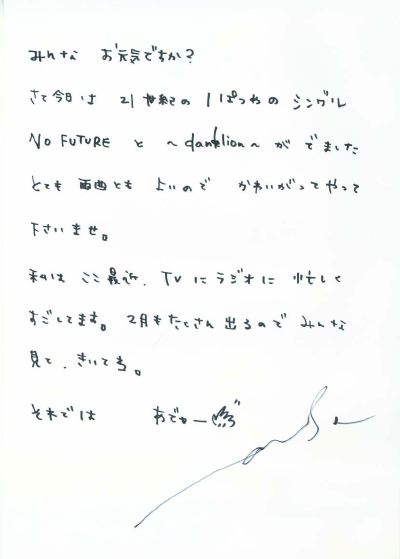 みんな お元気ですか?
さて今日は 21世紀の 1ぱつめの シングル
NO FUTURE と ～dandelion～ が でました
とても 両曲とも よいので かわいがってやって
下さいませ。
私は ここ最近、TVにラジオに 忙しく
すごしてます。2月もたくさん出るので みんな
見て、きいてち。
それでは あでゅー